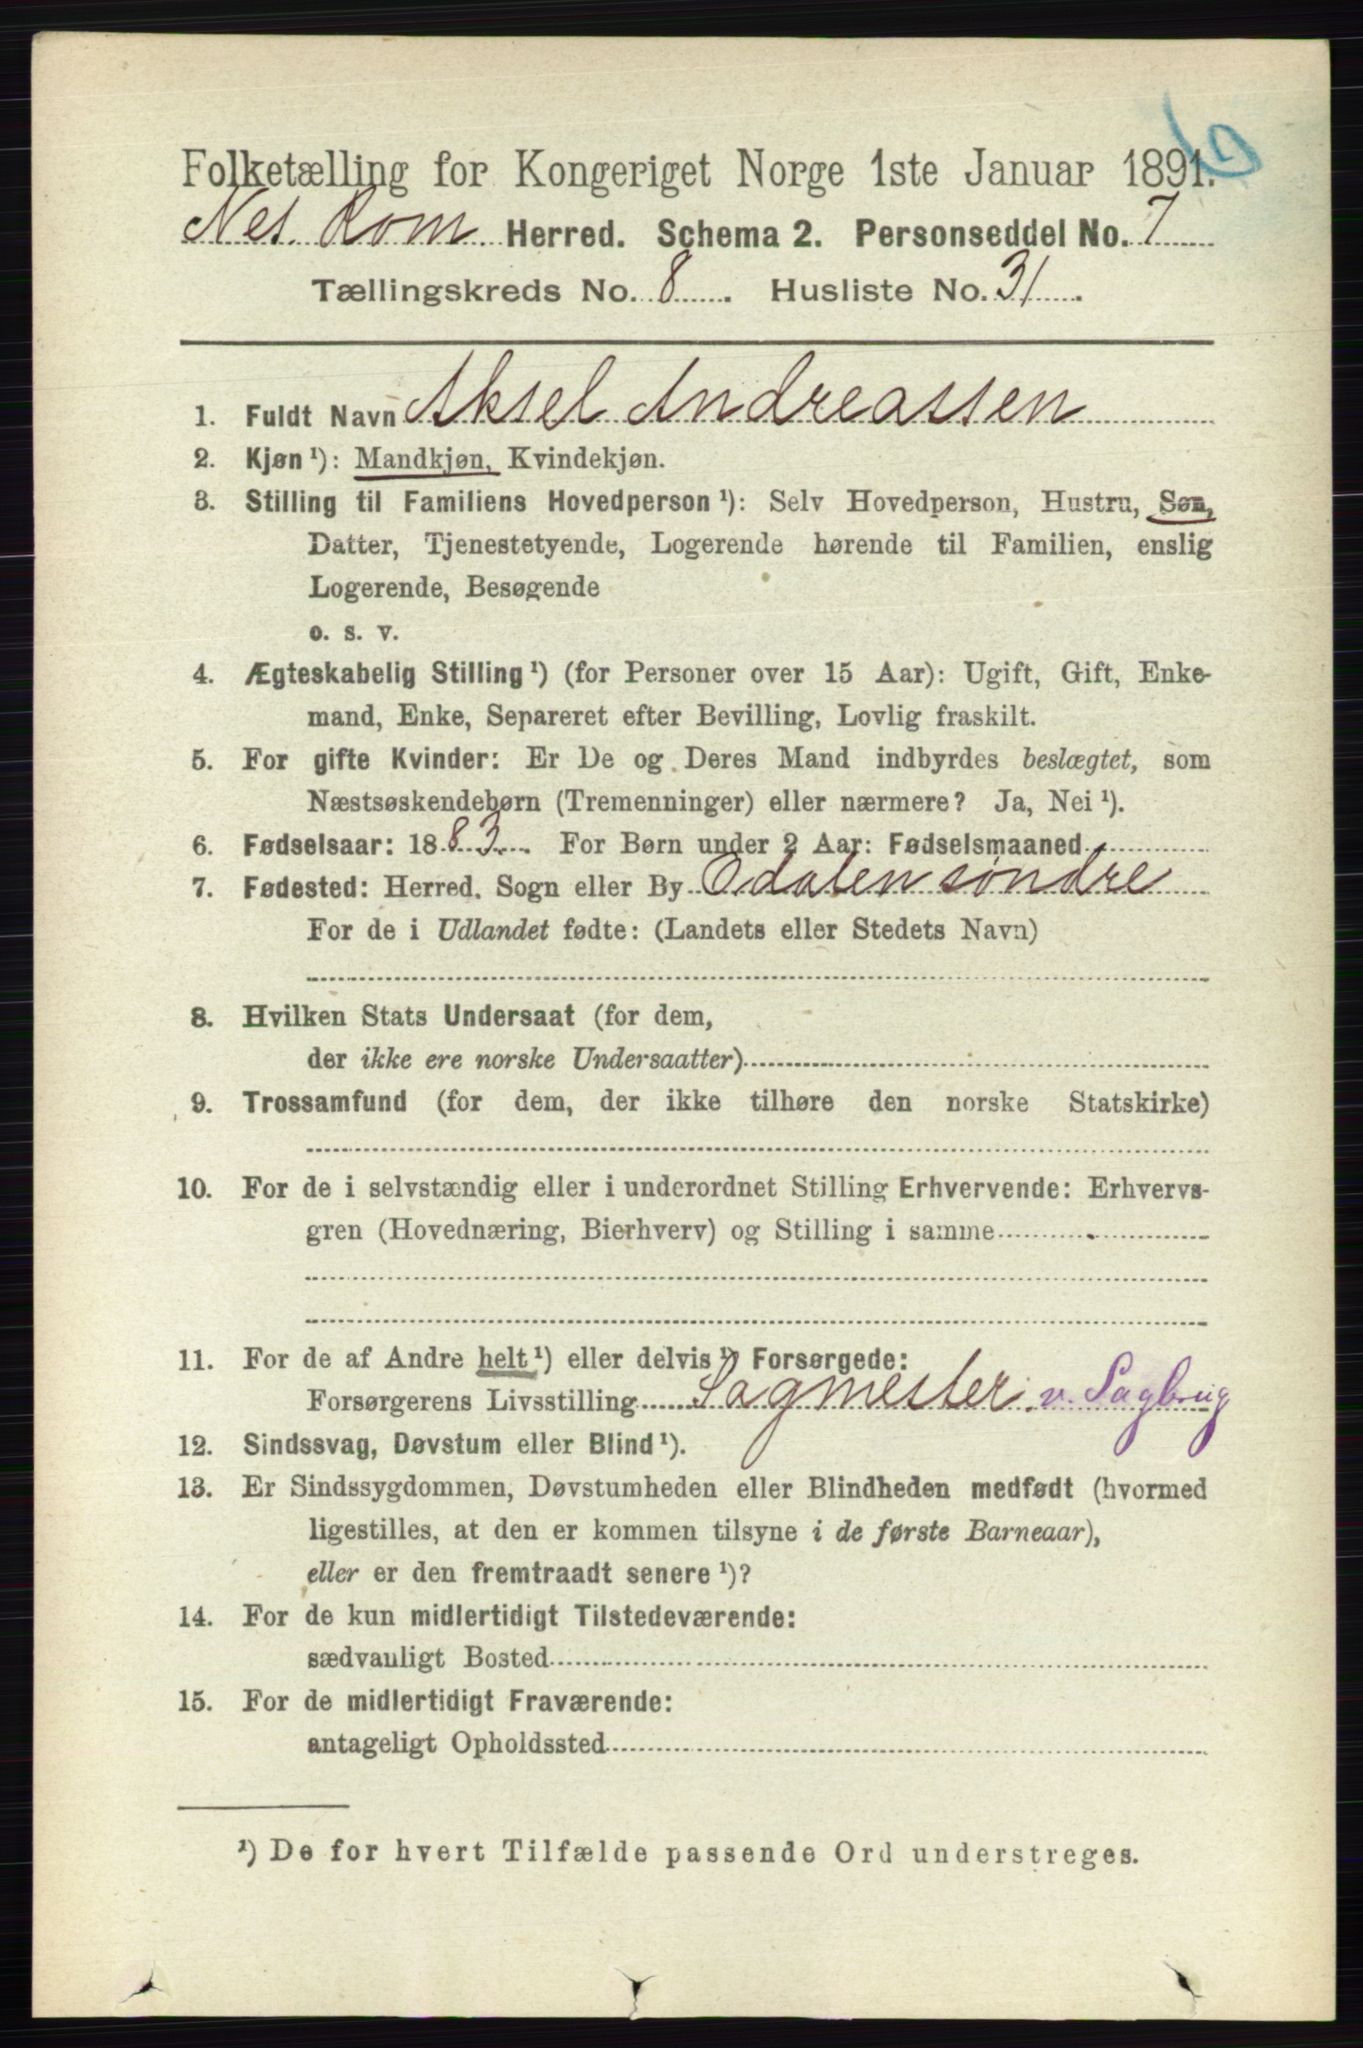 Folketælling for Kongeriget Norge 1ste Januar 1891.
Nes. Rom Herred. Schema 2. Personseddel No. 7
Tællingskreds No. 8 . Husliste No. 31 .
1. Fuldt Navn Aksel Andreassen
2. Kjøn¹): Mandkjøn, Kvindekjøn.
3. Stilling til Familiens Hovedperson¹): Selv Hovedperson, Hustru, Søn,
Datter, Tjenestetyende, Logerende hørende til Familien, enslig
Logerende, Besøgende
o. s. v.
4. Ægteskabelig Stilling¹) (for Personer over 15 Aar): Ugift, Gift, Enke-
mand, Enke, Separeret efter Bevilling, Lovlig fraskilt.
5. For gifte Kvinder: Er De og Deres Mand indbyrdes beslægtet, som
Næstsøskendebørn (Tremenninger) eller nærmere? Ja, Nei¹).
6. Fødselsaar: 1883. For Børn under 2 Aar: Fødselsmaaned
7. Fødested: Herred, Sogn eller By Odalen søndre
For de i Udlandet fødte: (Landets eller Stedets Navn)
8. Hvilken Stats Undersaat (for dem,
der ikke ere norske Undersaatter)
9. Trossamfund (for dem, der ikke tilhøre den norske Statskirke)
10. For de i selvstændig eller i underordnet Stilling Erhvervende: Erhvervs-
gren (Hovednæring, Bierhverv) og Stilling i samme
11. For de af Andre helt¹) eller delvis¹) Forsørgede:
Forsørgerens Livsstilling Sagmester v. Sagbrug
12. Sindssvag, Døvstum eller Blind¹).
13. Er Sindssygdommen, Døvstumheden eller Blindheden medfødt (hvormed
ligestilles, at den er kommen tilsyne i de første Barneaar),
eller er den fremtraadt senere¹)?
14. For de kun midlertidigt Tilstedeværende:
sædvanligt Bosted
15. For de midlertidigt Fraværende:
antageligt Opholdssted
¹) De for hvert Tilfælde passende Ord understreges.